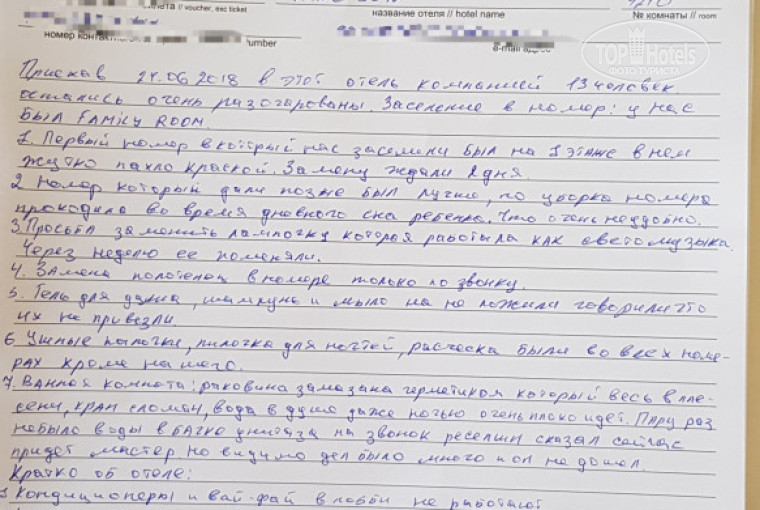 лета // voucher, esc ticket
название отеля // hotel name
№ комнаты // room
номер
umber
e-mail
TOPHotels
ФОТО ТУРИСТА
Приехав 24.06.2018 в этот отель компанией 13 человек
остались очень разочарованы. Заселение в номер: у нас
был FAMILY ROOM.
1. Первый номер в который нас заселили был на 1 этаже в нем
жутко пахло краской. Замену ждали 2 дня.
2 Номер который дали позже был лучше, но уборка номера
проходила во время дневного сна ребенка. Что очень неудобно.
3. Просьба заменить лампочку которая работала как светомузыка.
Через неделю ее поменяли.
4. Замена полотенец в номере только по звонку.
5. Гель для душа, шампунь и мыло на не ложили говорили что
их не привезли.
6 Ушные палочки, пилочка для ногтей, расческа были во всех номе-
рах кроме нашего.
7. Ванная комната: раковина замазана герметиком который весь в пле-
сени, кран сломан, вода в душе даже ночью очень плохо идет. Пару раз
небыло воды в бачке унитаза на звонок ресепшн сказал сейчас
придет мастер но видимо дел было много и он не дошел.
Кратко об отеле:
1 Кондиционеры и вай-фай в лобби не работают